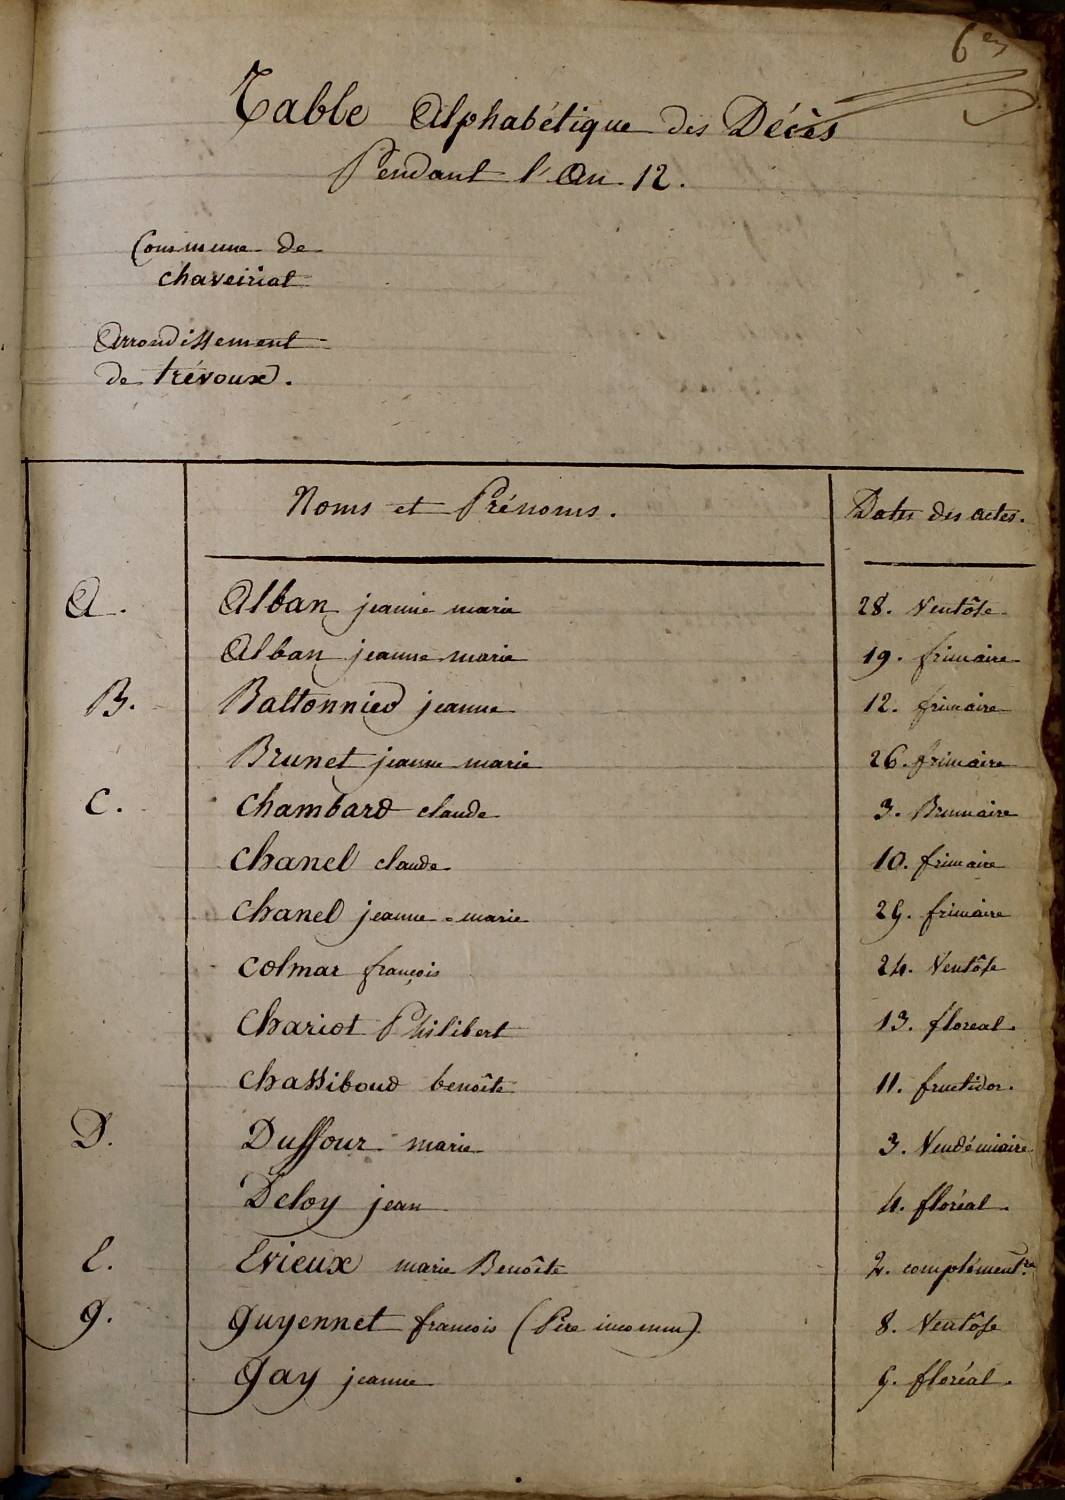 6es
Table Alphabétique des Décès
Pendant l'An 12.
Commune de
chaveiriat
Arrondissement
de trévoux.
Noms et Prénoms. Dates des actes.
A. Alban jeanne marie 28. Ventôse
Alban jeanne marie 19. frimaire
B. Baltonnied jeanne 12. frimaire
Brunet jeanne marie 26. frimaire
C. Chambard claude 3. Brumaire
Chanel claude 10. frimaire
Chanel jeanne-marie 29. frimaire
Colmar françois 24. Ventôse
Chariot Philibert 13. floreal.
Chassiboud benoîte 11. fructidor.
D. Duffour marie 3. Vendémiaire
Deloy jean 4. floréal.
E. Evieux marie Benoîte 2. complémentre
G. Guyennet francois (Père inconnu) 8. Ventôse
Gay jeanne 9. floréal.